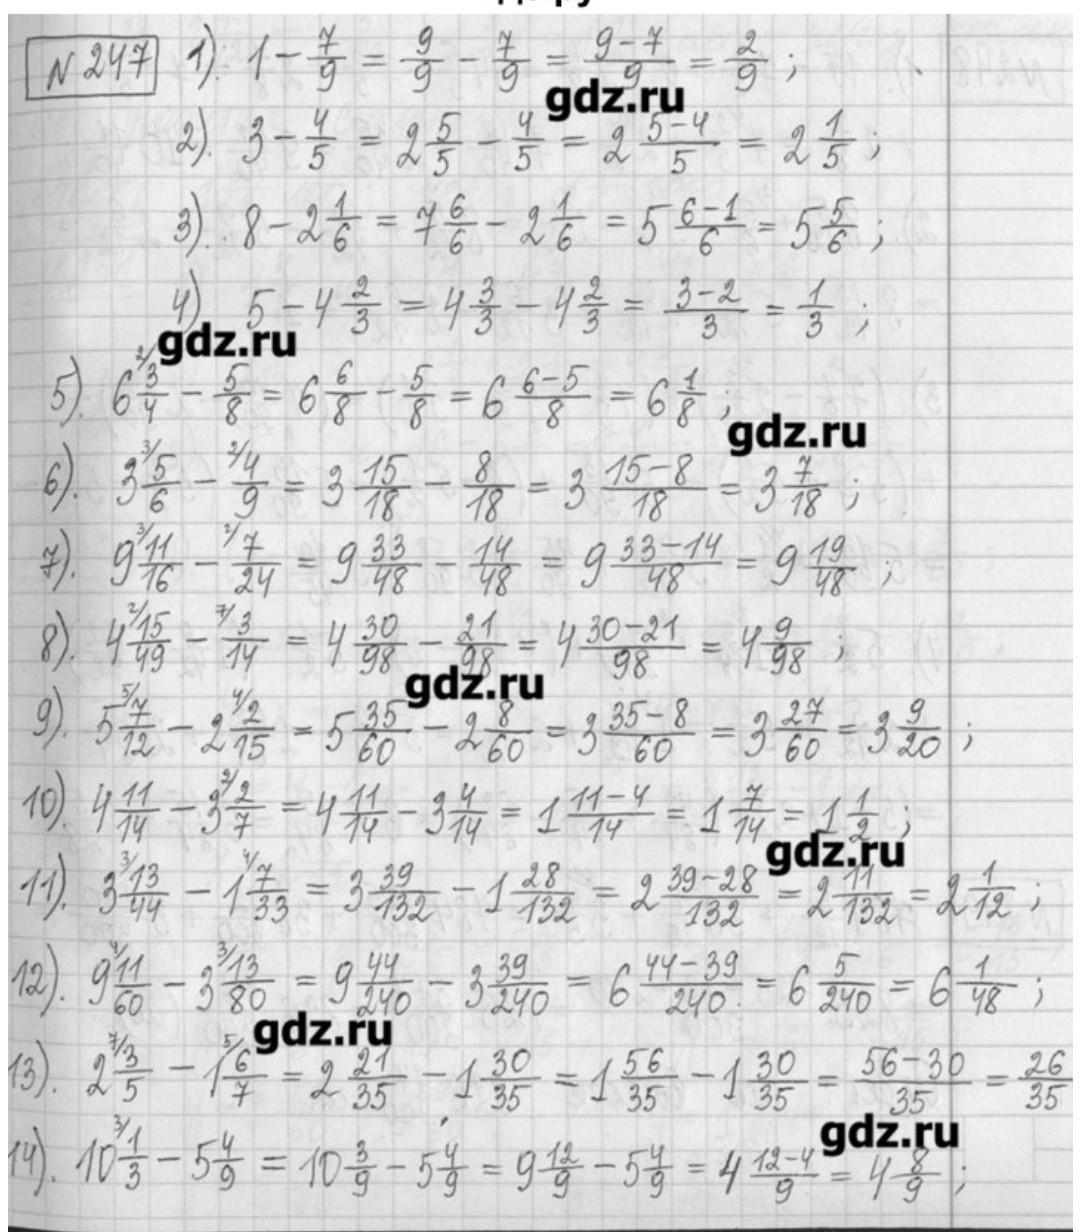 № 247 1). 1 - 7/9 = 9/9 - 7/9 = (9-7)/9 = 2/9 ;
gdz.ru
2). 3 - 4/5 = 2 5/5 - 4/5 = 2 (5-4)/5 = 2 1/5 ;
3). 8 - 2 1/6 = 7 6/6 - 2 1/6 = 5 (6-1)/6 = 5 5/6 ;
4) 5 - 4 2/3 = 4 3/3 - 4 2/3 = (3-2)/3 = 1/3 ;
gdz.ru
5). 6 ²⁄3/4 - 5/8 = 6 6/8 - 5/8 = 6 (6-5)/8 = 6 1/8 ;
gdz.ru
6). 3 ³⁄5/6 - ²⁄4/9 = 3 15/18 - 8/18 = 3 (15-8)/18 = 3 7/18 ;
7). 9 ³⁄11/16 - ²⁄7/24 = 9 33/48 - 14/48 = 9 (33-14)/48 = 9 19/48 ;
8). 4 ²⁄15/49 - ⁷⁄3/14 = 4 30/98 - 21/98 = 4 (30-21)/98 = 4 9/98 ;
gdz.ru
9). 5 ⁵⁄7/12 - 2 ⁴⁄2/15 = 5 35/60 - 2 8/60 = 3 (35-8)/60 = 3 27/60 = 3 9/20 ;
10). 4 11/14 - 3 ²⁄2/7 = 4 11/14 - 3 4/14 = 1 (11-4)/14 = 1 7/14 = 1 1/2 ;
gdz.ru
11). 3 ³⁄13/44 - 1 ⁴⁄7/33 = 3 39/132 - 1 28/132 = 2 (39-28)/132 = 2 11/132 = 2 1/12 ;
12). 9 ⁴⁄11/60 - 3 ³⁄13/80 = 9 44/240 - 3 39/240 = 6 (44-39)/240 = 6 5/240 = 6 1/48 ;
gdz.ru
13). 2 ⁷⁄3/5 - 1 ⁵⁄6/7 = 2 21/35 - 1 30/35 = 1 56/35 - 1 30/35 = (56-30)/35 = 26/35
gdz.ru
14). 10 ³⁄1/3 - 5 4/9 = 10 3/9 - 5 4/9 = 9 12/9 - 5 4/9 = 4 (12-4)/9 = 4 8/9 ;